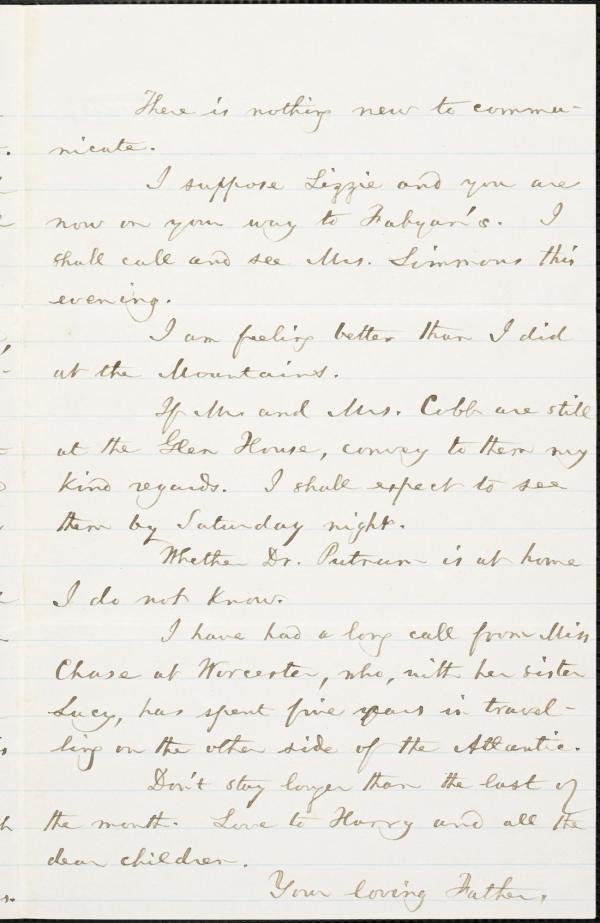 There is nothing new to commu-
nicate.
I suppose Lizzie and you are
now on your way to Fabyan's. I
shall call and see Mrs. Simmons this
evening.
I am feeling better than I did
at the Mountains.
If Mr and Mrs. Cobb are still
at the Glen House, convey to them my
kind regards. I shall expect to see
them by Saturday night.
Whether Dr. Putnam is at home
I do not know.
I have had a long call from Miss
Chase at Worcester, who, with her sister
Lucy, has spent five years in travel-
ling on the other side of the Atlantic.
Don't stay longer than the last of
the month. Love to Harry and all the
dear children.
Your loving Father.